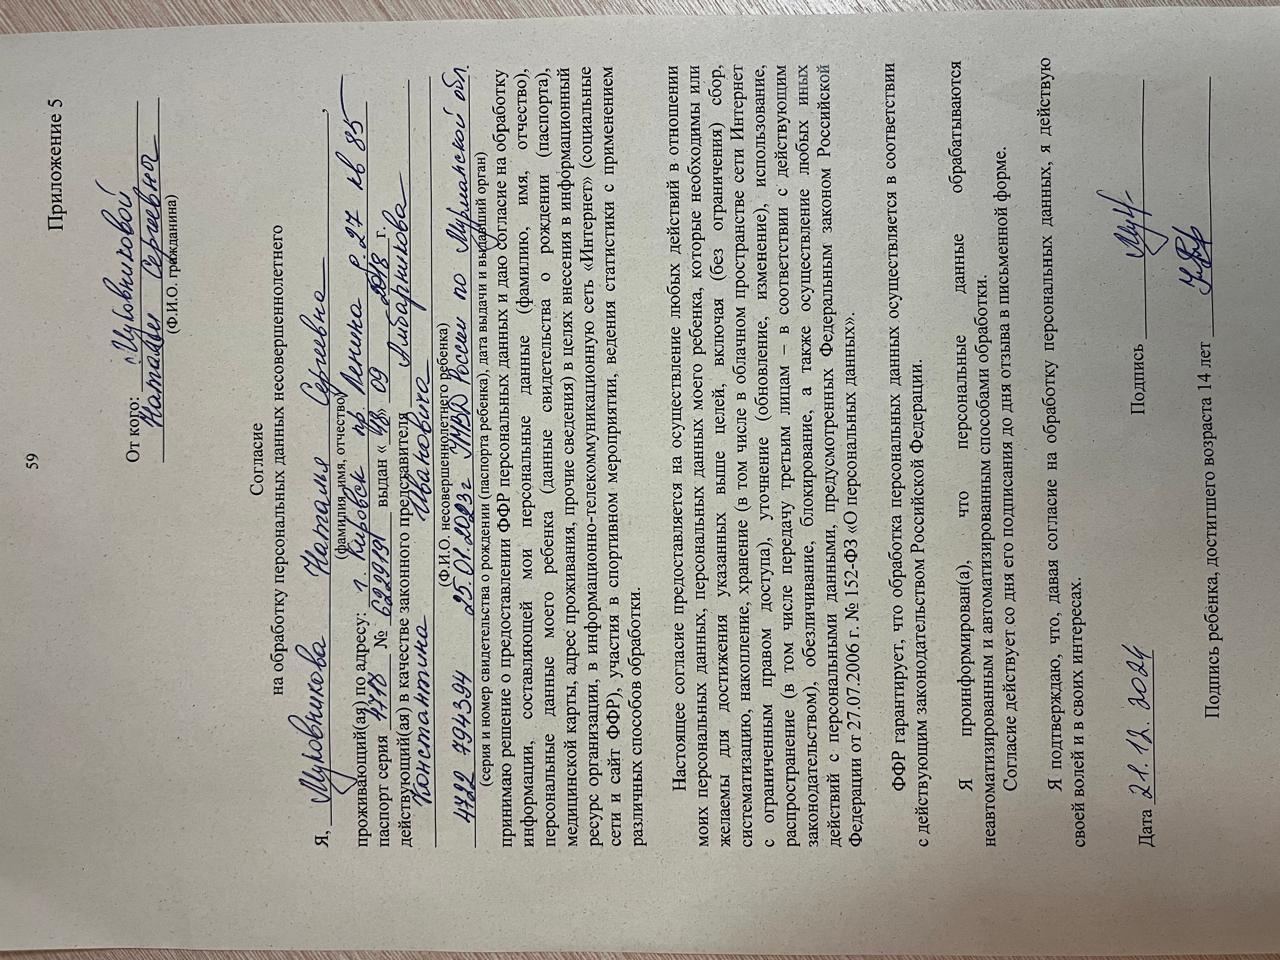 59
Приложение 5
От кого: Муковниковой
Натальи Сергеевны
(Ф.И.О. гражданина)
Согласие
на обработку персональных данных несовершеннолетнего
Я, Муковникова Наталья Сергеевна,
(фамилия, имя, отчество)
проживающий(ая) по адресу: г. Кировск пр Ленина д. 27 кв 85
паспорт серия 4718 № 622919 выдан « » 09 2018 г.
действующий(ая) в качестве законного представителя Амбарникова
Константина Ивановича
(Ф.И.О. несовершеннолетнего ребенка)
4722 794394 25.01.2023г УМВД России по Мурманской обл.
(серия и номер свидетельства о рождении (паспорта ребенка), дата выдачи и выдавший орган)
принимаю решение о предоставлении ФФР персональных данных и даю согласие на обработку
информации, составляющей мои персональные данные (фамилию, имя, отчество),
персональные данные моего ребенка (данные свидетельства о рождении (паспорта),
медицинской карты, адрес проживания, прочие сведения) в целях внесения в информационный
ресурс организации, в информационно-телекоммуникационную сеть «Интернет» (социальные
сети и сайт ФФР), участия в спортивном мероприятии, ведения статистики с применением
различных способов обработки.
Настоящее согласие предоставляется на осуществление любых действий в отношении
моих персональных данных, персональных данных моего ребенка, которые необходимы или
желаемы для достижения указанных выше целей, включая (без ограничения) сбор,
систематизацию, накопление, хранение (в том числе в облачном пространстве сети Интернет
с ограниченным правом доступа), уточнение (обновление, изменение), использование,
распространение (в том числе передачу третьим лицам – в соответствии с действующим
законодательством), обезличивание, блокирование, а также осуществление любых иных
действий с персональными данными, предусмотренных Федеральным законом Российской
Федерации от 27.07.2006 г. № 152-ФЗ «О персональных данных».
ФФР гарантирует, что обработка персональных данных осуществляется в соответствии
с действующим законодательством Российской Федерации.
Я проинформирован(а), что персональные данные обрабатываются
неавтоматизированным и автоматизированным способами обработки.
Согласие действует со дня его подписания до дня отзыва в письменной форме.
Я подтверждаю, что, давая согласие на обработку персональных данных, я действую
своей волей и в своих интересах.
Дата 21.12.2024 Подпись
Подпись ребёнка, достигшего возраста 14 лет